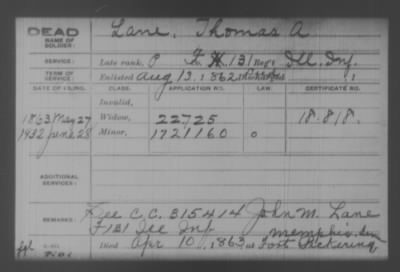 DEAD
NAME OF SOLDIER:
Lane, Thomas A
SERVICE:
Late rank, P Co. 131 Reg't Ill. Inf.
TERM OF SERVICE:
Enlisted Aug 13, 1862
DATE OF FILING. CLASS. APPLICATION NO. LAW. CERTIFICATE NO.
Invalid,
1863 May 27 Widow, 22725 18.818.
1932 June 28 Minor, 1721160 0
ADDITIONAL SERVICES:
REMARKS: See C.C. 315414 John M. Lane
F 131 Ill Inf Memphis
Died Apr 10, 1863, at Fort Pickering